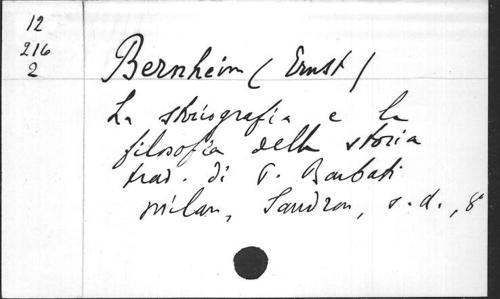 12
216
2
Bernheim (Ernst)
La storiografia e la
filosofia della storia
trad. di P. Barbati
Milan, Sandron, s.d., 8º